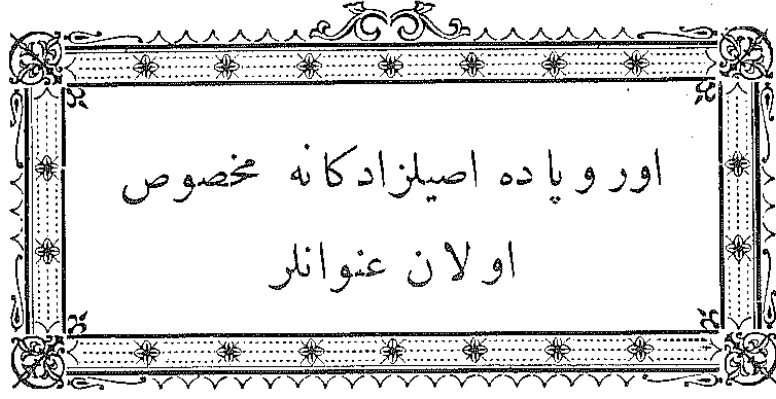 اوروپاده اصیلزادكانه مخصوص
اولان عنوانلر